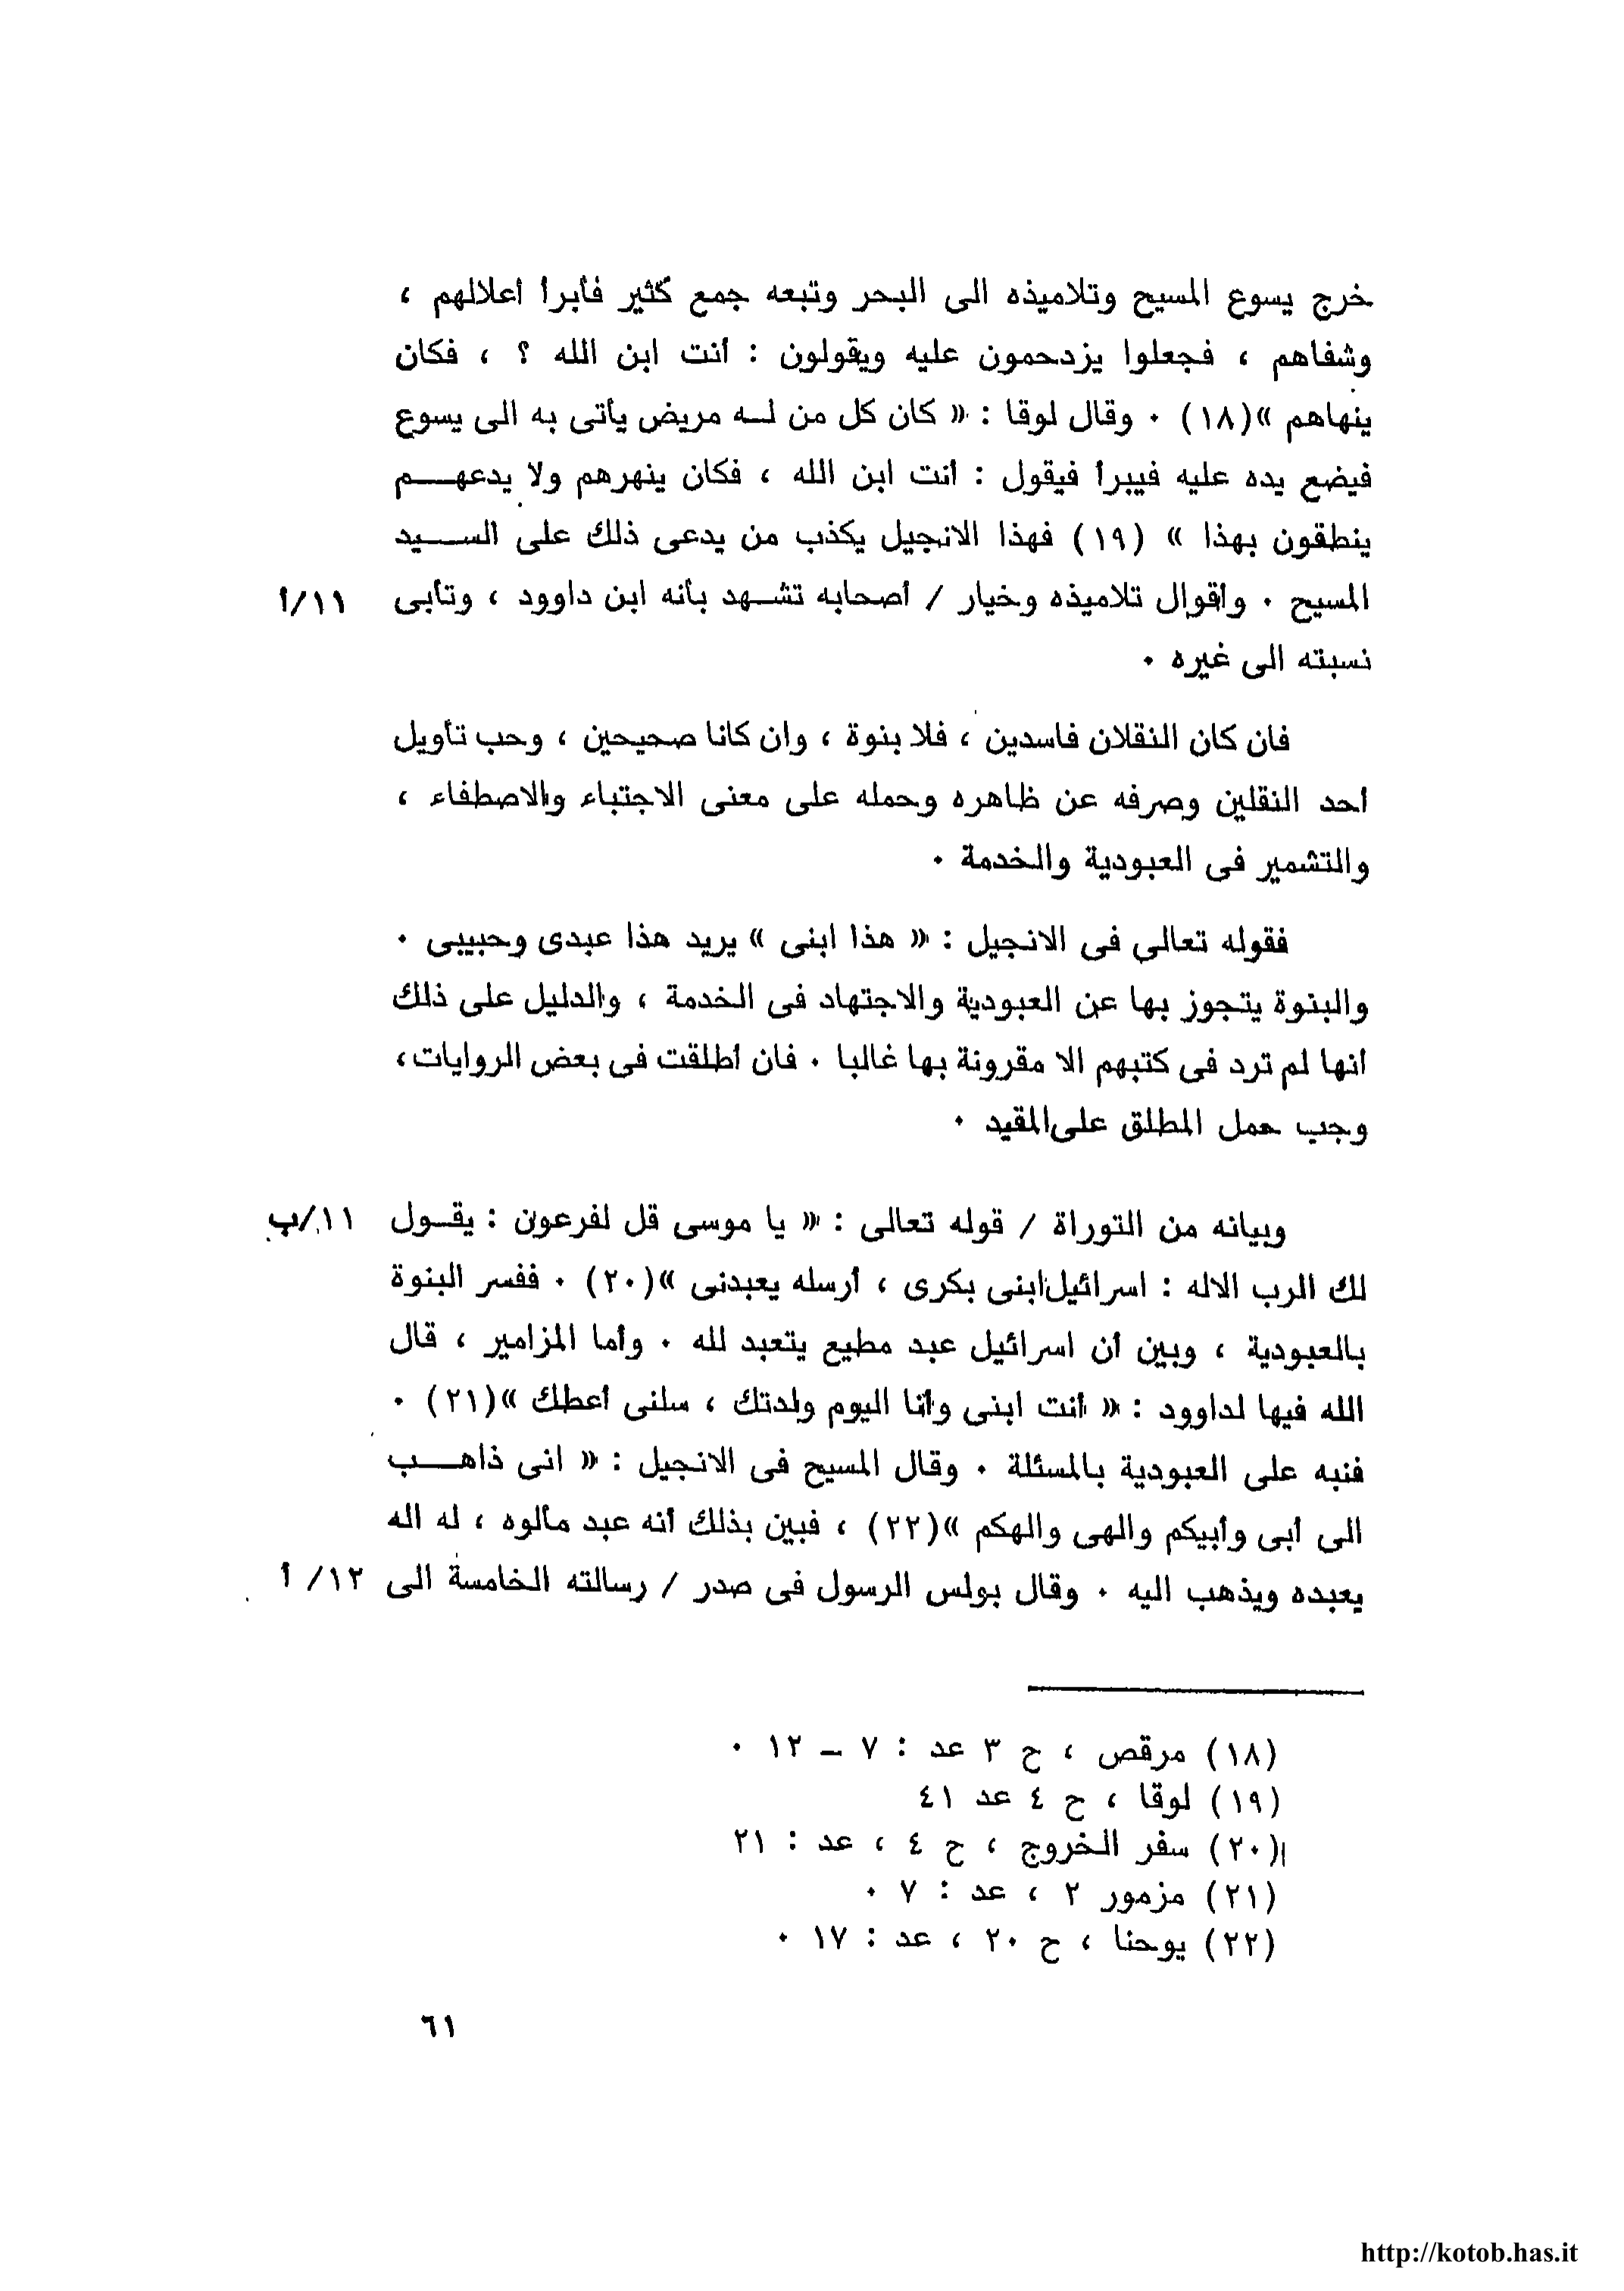 خرج يسوع المسيح وتلاميذه الى البحر وتبعه جمع كثير فأبرأ أعلالهم ،
وشفاهم ، فجعلوا يزدحمون عليه ويقولون : أنت ابن الله ؟ ، فكان
ينهاهم »(١٨) ٠ وقال لوقا : « كان كل من لـه مريض يأتى به الى يسوع
فيضع يده عليه فيبرأ فيقول : أنت ابن الله ، فكان ينهرهم ولا يدعهـــم
ينطقون بهذا » (١٩) فهذا الانجيل يكذب من يدعى ذلك على الســـيد
المسيح ٠ وأقوال تلاميذه وخيار / أصحابه تشـهد بأنه ابن داوود ، وتأبى ١١/أ
نسبته الى غيره ٠
فان كان النقلان فاسدين ، فلا بنوة ، وان كانا صحيحين ، وحب تأويل
أحد النقلين وصرفه عن ظاهره وحمله على معنى الاجتباء والاصطفاء ،
والتشمير فى العبودية والخدمة ٠
فقوله تعالى فى الانجيل : « هذا ابنى » يريد هذا عبدى وحبيبى ٠
والبنوة يتجوز بها عن العبودية والاجتهاد فى الخدمة ، والدليل على ذلك
أنها لم ترد فى كتبهم الا مقرونة بها غالبا ٠ فان أطلقت فى بعض الروايات،
وجب حمل المطلق على المقيد ٠
وبيانه من التوراة / قوله تعالى : « يا موسى قل لفرعون : يقـول ١١/ب
لك الرب الاله : اسرائيل ابنى بكرى ، أرسله يعبدنى »(٢٠) ٠ ففسر البنوة
بالعبودية ، وبين أن اسرائيل عبد مطيع يتعبد لله ٠ وأما المزامير ، قال
الله فيها لداوود : « أنت ابنى وأنا اليوم ولدتك ، سلنى أعطك »(٢١) ٠
فنبه على العبودية بالمسئلة ٠ وقال المسيح فى الانجيل : « انى ذاهــب
الى أبى وأبيكم والهى والهكم »(٢٢) ، فبين بذلك أنه عبد مألوه ، له اله
يعبده ويذهب اليه ٠ وقال بولس الرسول فى صدر / رسالته الخامسة الى ١٢/أ
(١٨) مرقص ، ح ٣ عد : ٧ – ١٢ ٠
(١٩) لوقا ، ح ٤ عد ٤١
(٢٠) سفر الخروج ، ح ٤ ، عد : ٢١
(٢١) مزمور ٢ ، عد : ٧ ٠
(٢٢) يوحنا ، ح ٢٠ ، عد : ١٧ ٠
٦١
http://kotob.has.it